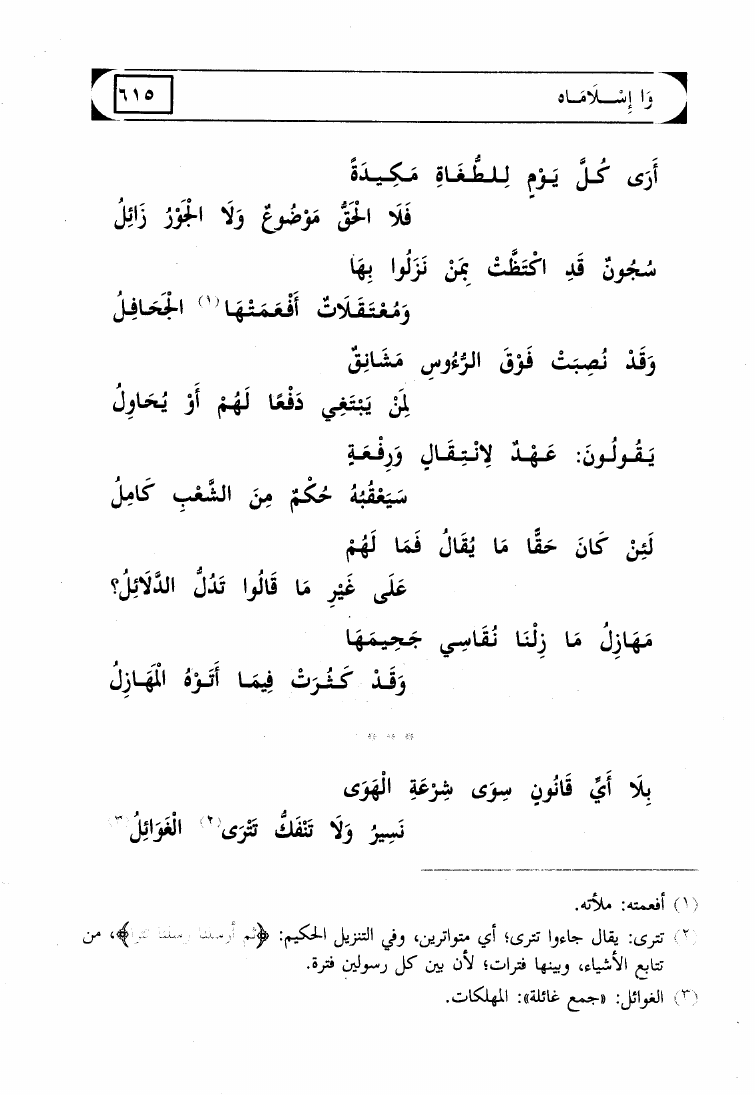 وَا إِسْـلَامَـاه
٦١٥
أَرَى كُلَّ يَوْمٍ لِلطُّغَاةِ مَكِيدَةً
فَلَا الْحَقُّ مَوْضُوعٌ وَلَا الْجَوْرُ زَائِلُ
سُجُونٌ قَدِ اكْتَظَّتْ بِمَنْ نَزَلُوا بِهَا
وَمُعْتَقَلَاتٌ أَفْعَمَتْهَا (١) الْجَحَافِلُ
وَقَدْ نُصِبَتْ فَوْقَ الرُّءُوسِ مَشَانِقٌ
لِمَنْ يَبْتَغِي دَفْعًا لَهُمْ أَوْ يُحَاوِلُ
يَقُولُونَ: عَهْدٌ لِانْتِقَالٍ وَرِفْعَةٍ
سَيَعْقُبُهُ حُكْمٌ مِنَ الشَّعْبِ كَامِلُ
لَئِنْ كَانَ حَقًّا مَا يُقَالُ فَمَا لَهُمْ
عَلَى غَيْرِ مَا قَالُوا تَدُلُّ الدَّلَائِلُ؟
مَهَازِلُ مَا زِلْنَا نُقَاسِي جَحِيمَهَا
وَقَدْ كَثُرَتْ فِيمَا أَتَوْهُ الْمَهَازِلُ
* * *
بِلَا أَيِّ قَانُونٍ سِوَى شِرْعَةِ الْهَوَى
نَسِيرُ وَلَا تَنْفَكُّ تَتْرَى (٢) الْغَوَائِلُ (٣)
(١) أفعمته: ملأته.
(٢) تترى: يقال جاءوا تترى؛ أي متواترين، وفي التنزيل الحكيم: ﴿ثم أرسلنا رسلنا تترا﴾، من
تتابع الأشياء، وبينها فترات؛ لأن بين كل رسولين فترة.
(٣) الغوائل: «جمع غائلة»: المهلكات.